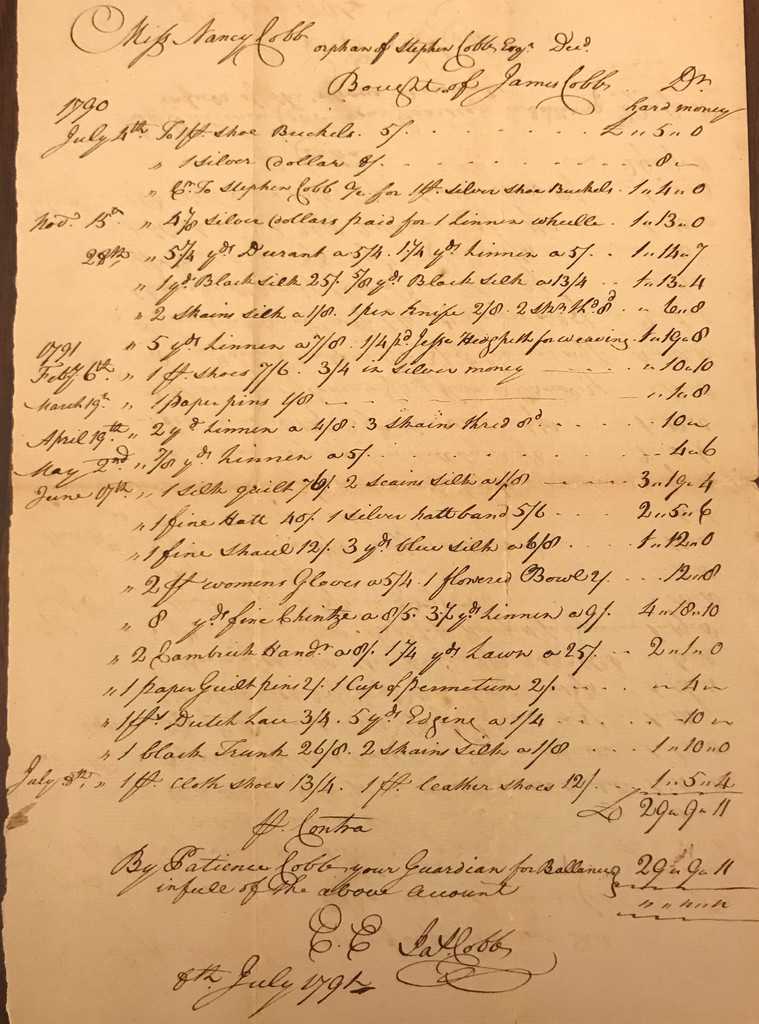 Miss Nancy Cobb orphan of Stephen Cobb Esqr. Decd.
Bought of James Cobb Dr
1790 hard money
July 4th. To 1 pr. shoe Buckels. 5/. £ " 5 " 0
" 1 silver dollar 8/. " 8 "
" To Stephen Cobb for 1 pr. silver shoe Buckels. 1 " 4 " 0
Novr. 15th " 4 1/8 silver dollars paid for 1 linnen wheele. 1 " 13 " 0
28th " 5 3/4 yds Durant a 5/4. 1 3/4 yds linnen a 5/. 1 " 14 " 7
" 1 yd. Black silk 25/. 5/8 yds Black silk a 13/4 1 " 13 " 4
" 2 skains silk a 1/8. 1 pen knife 2/8. 2 thd. 8d. " 6 " 8
1791 " 5 yds linnen a 7/8. 1/4 pd Jesse Hedgpeth for weaving. 1 " 19 " 8
Feby 6th. " 1 pr. shoes 7/6. 3/4 in silver money " 10 " 10
March 19th " 1 paper pins 1/8 " 1 " 8
April 19th. " 2 yds linnen a 4/8. 3 skains thred 8d. 10 "
May 2nd " 7/8 yds linnen a 5/. 4 " 6
June 17th. " 1 silk quilt 76/. 2 scains silk a 1/8 3 " 19 " 4
" 1 fine Hatt 40/. 1 silver hatt band 5/6 2 " 5 " 6
" 1 fine shawl 12/. 3 yds blue silk a 6/8 1 " 12 " 0
" 2 pr womens Gloves a 5/4. 1 flowered Bowl 2/. 12 " 8
" 8 yds fine Chintze a 8/5. 3 1/2 yds linnen a 9/. 4 " 18 " 10
" 2 Cambrick Handr. a 8/. 1 3/4 yds Lawn a 25/. 2 " 1 " 0
" 1 paper Guilt pins 2/. 1 Cup of permetum 2/. " 4 "
" 1 ps Dutch lace 3/4. 5 yds Edging a 1/4 10 "
" 1 black Trunk 26/8. 2 skains silk a 1/8 1 " 10 " 0
July 8th. " 1 pr. cloth shoes 13/4. 1 pr. leather shoes 12/. 1 " 5 " 4
£ 29 " 9 " 11
Pr. Contra
By Patience Cobb your Guardian for Ballance 29 " 9 " 11
in full of the above account " " " "
E. E Jas. Cobb
8th. July 1791